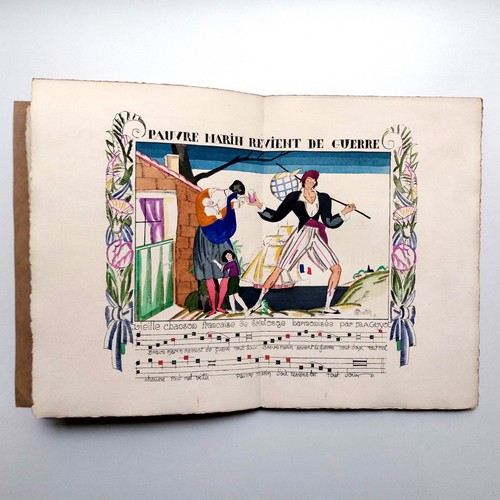 PAUVRE MARIN REVIENT DE GUERRE
Vieille chanson française de Saintonge harmonisée par
Brave marin revient de guerre tout doux Brave marin revient de guerre tout doux tout mal
chaussé tout mal vêtu Pauvre marin d'où reviens tu tout doux